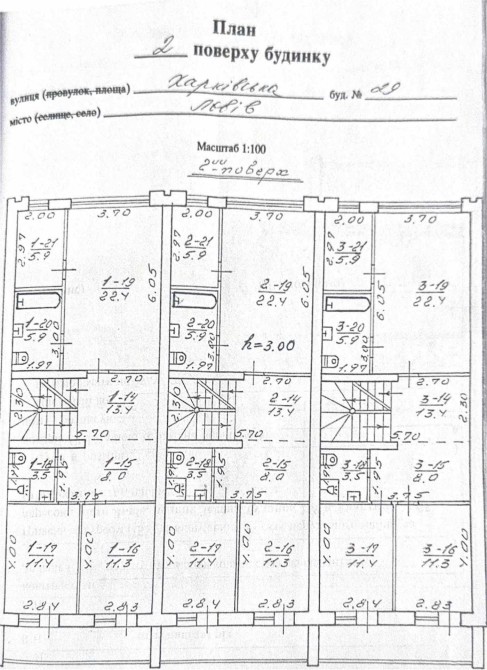 План
2 поверху будинку
вулиця (провулок, площа) Харківська буд. № 29
місто (селище, село) Львів
Масштаб 1:100
2ий поверх
2.00 3.70 2.00 3.70 2.00 3.70
2.97 1-21 5.9 2.97 2-21 5.9 2.97 3-21 5.9
1-19 22.4 6.05 2-19 22.4 6.05 3-19 22.4 6.05
1-20 5.9 3.00 2-20 5.9 3.00 3-20 5.9 3.00
h=3.00
1.97 1.97 1.97
2.70 2.70 2.70
2.30 1-14 13.4 2.30 2-14 13.4 3-14 13.4 2.30
5.70 5.70 5.70
1-18 3.5 1.95 1-15 8.0 2-18 3.5 1.95 2-15 8.0 3-18 3.5 1.95 3-15 8.0
3.75 3.75 3.75
4.00 1-17 11.4 1-16 11.3 4.00 4.00 2-17 11.4 2-16 11.3 4.00 4.00 3-17 11.4 3-16 11.3 4.00
2.84 2.83 2.84 2.83 2.84 2.83